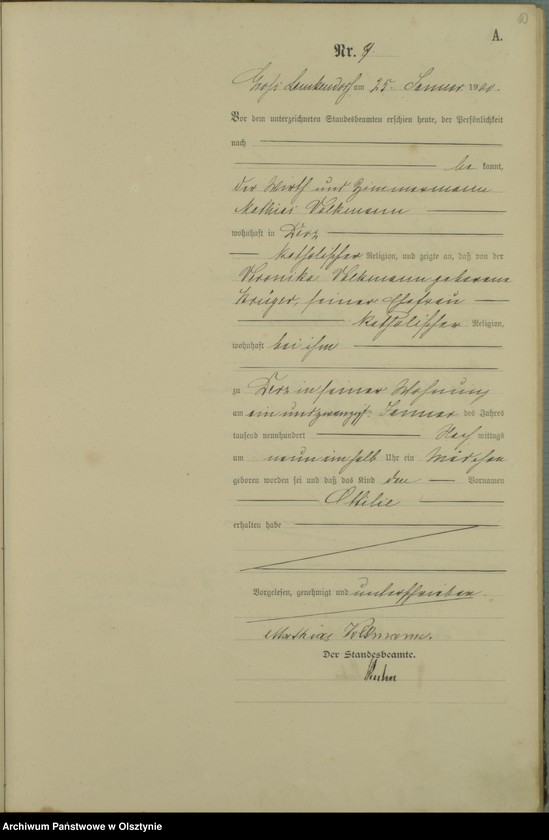 A.
Nr. 9
Groß Lemkendorf am 25. Januar 1900.
Vor dem unterzeichneten Standesbeamten erschien heute, der Persönlichkeit
nach
be kannt,
der Wirth und Zimmermann
Mathias Volkmann
wohnhaft in Derz
katholischer Religion, und zeigte an, daß von der
Veronika Volkmann geborene
Krüger, seiner Ehefrau
katholischer Religion,
wohnhaft bei ihm
zu Derz in seiner Wohnung
am ein und zwanzigst. Januar des Jahres
tausend neunhundert Nach mittags
um neun ein halb Uhr ein Mädchen
geboren worden sei und daß das Kind den Vornamen
Ottilie
erhalten habe
Vorgelesen, genehmigt und unterschrieben
Mathias Volkmann.
Der Standesbeamte.
Archiwum Państwowe w Olsztynie